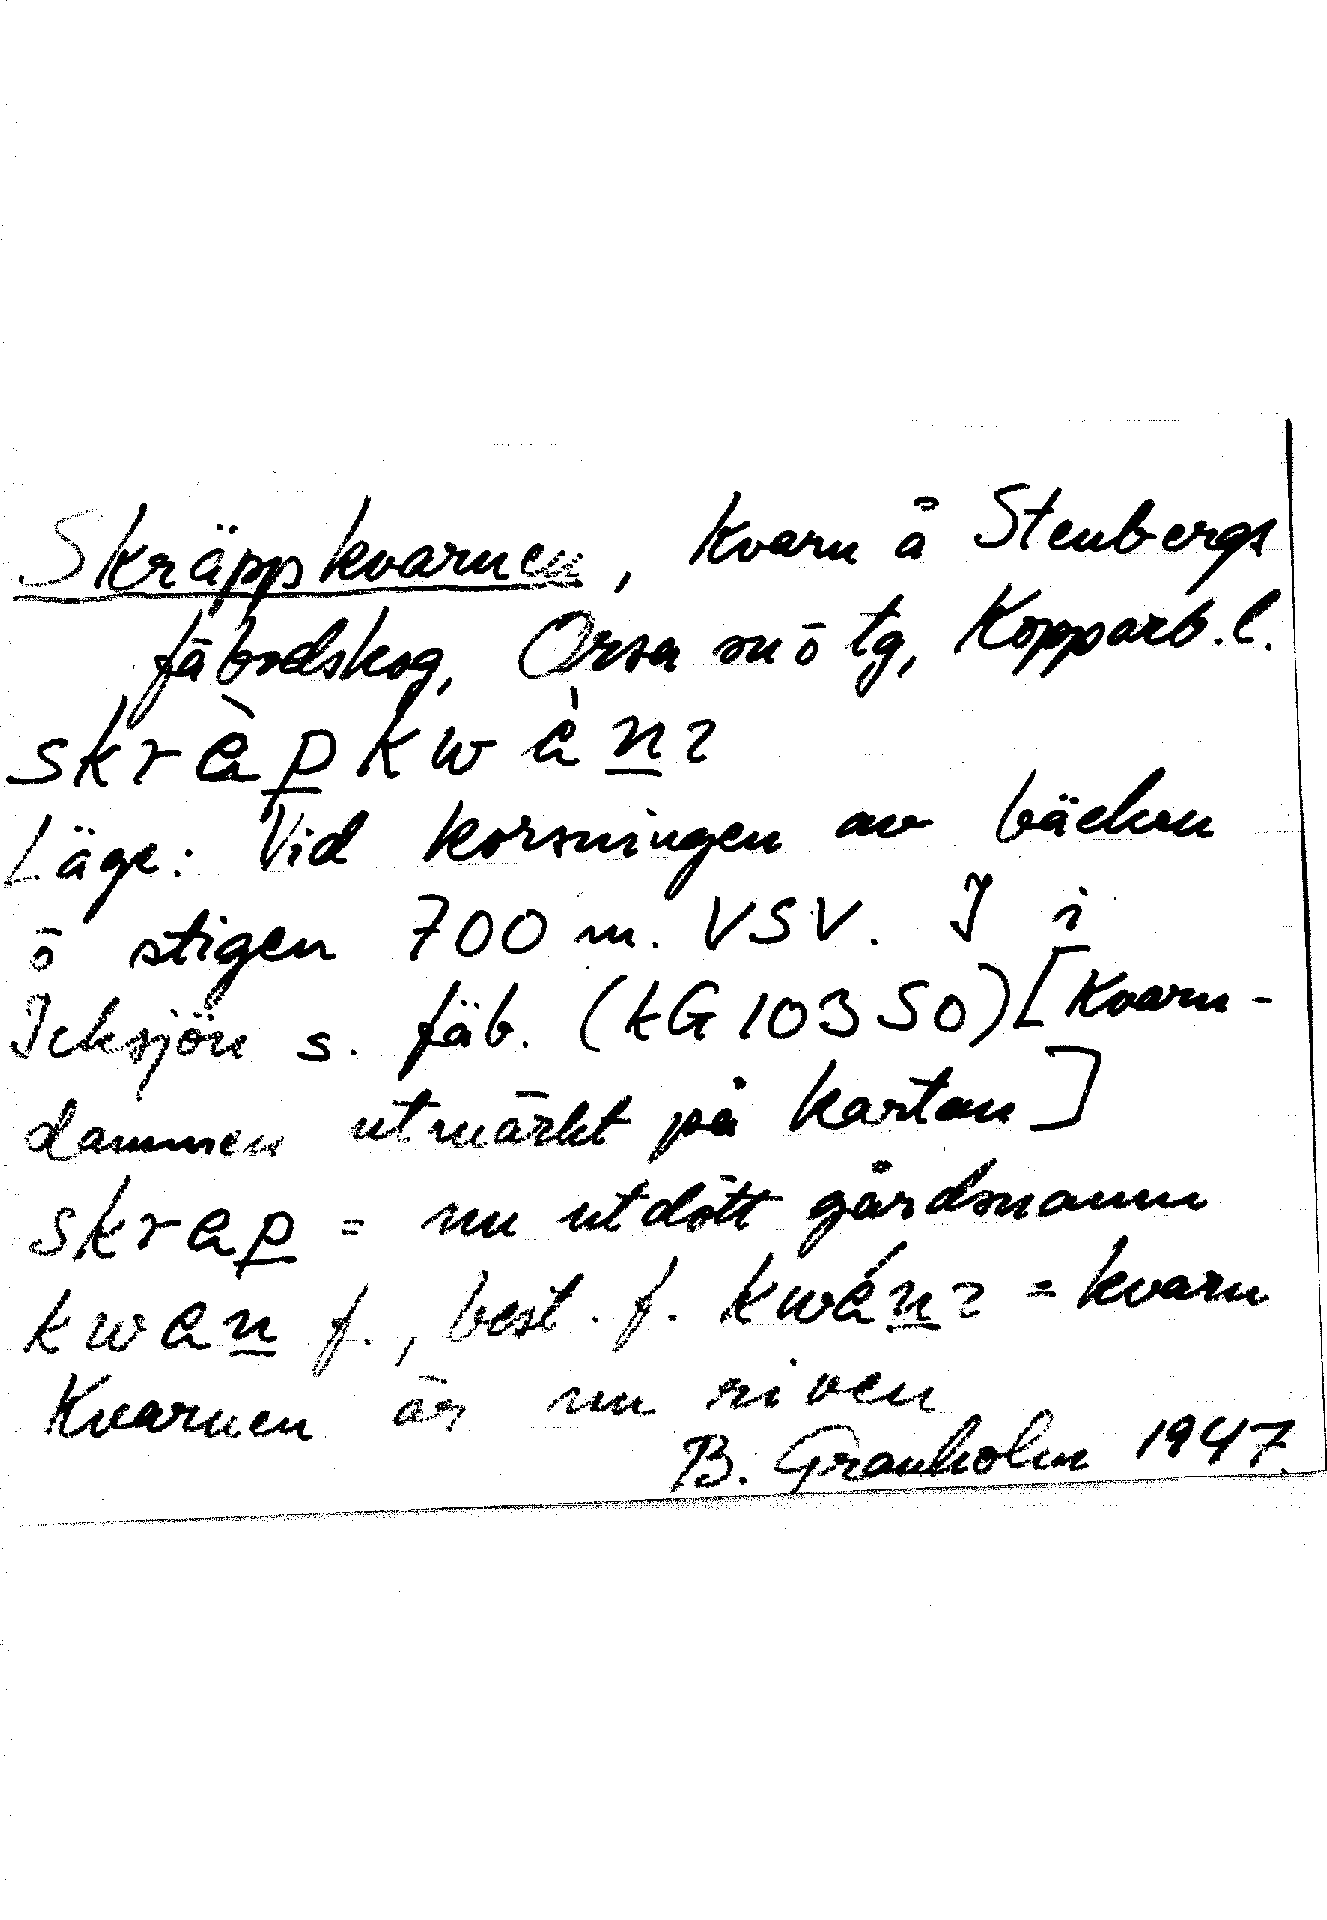 Skräppkvarnen, kvarn å Stenbergs
fäbodskog, Orsa sn ō tg, Kopparb. l.
skràpkwànɿ
Läge: Vid korsningen av bäcken
ō stigen 700 m. VSV. J i
Icksjön s. fäb. (kG 10350) [Kvarn-
dammen utmärkt på kartan]
skrap = nu utdött gårdsnamn
kwan f., best. f. kwánɿ = kvarn
Kvarnen är nu riven
B. Granholm 1947.